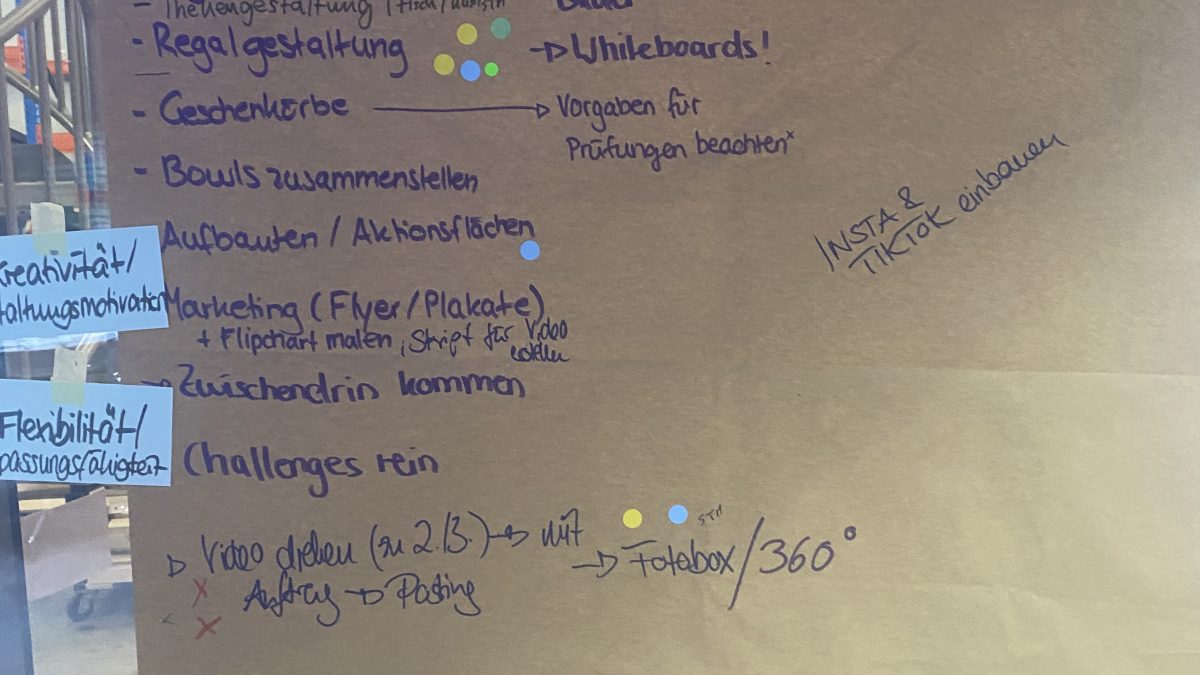 - Thekengestaltung (Fisch/
- Regalgestaltung → Whiteboards!
- Geschenkörbe → Vorgaben für
Prüfungen beachten*
- Bowls zusammenstellen
INSTA &
TIKTOK einbauen
Aufbauten / Aktionsflächen
Kreativität/
taltungsmotivation
Marketing (Flyer/Plakate)
+ Flipchart malen, Skript für Video
→ Zwischendrin kommen
Flexibilität/
passungsfähigkeit
Challenges rein
▷ Video drehen (zu 2./3.) → mit
Auftrag → Posting
→ Fotobox/360°